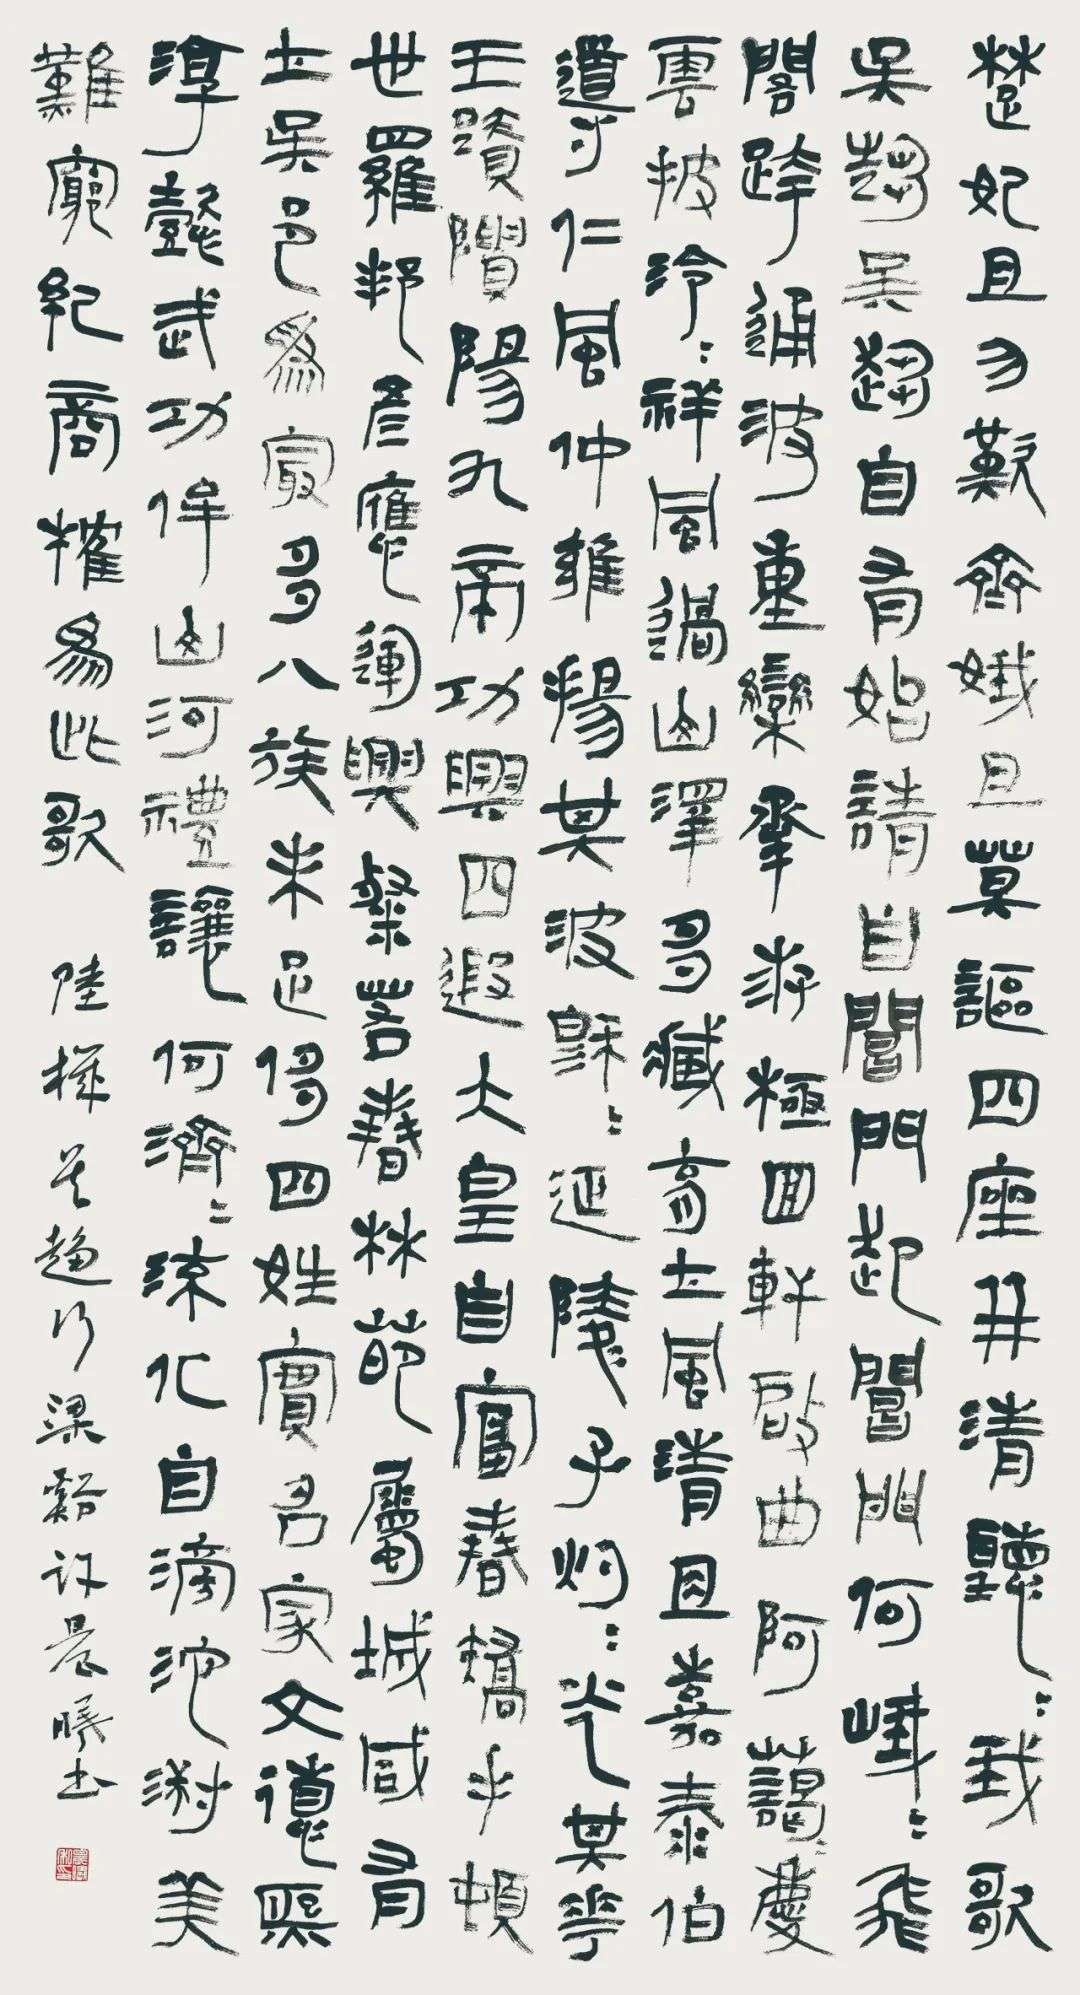 楚妃且勿歎齊娥且莫謳四座並清聽〻我歌
吳趨吳趨自有始請自閶門起閶門何峨〻飛
閣跨通波重欒承游極回軒啟曲阿藹〻慶
雲被泠〻祥風過山澤多藏育土風清且嘉泰伯
導仁風仲雍揚其波穆〻延陵子灼〻光其華
王蹟隤陽九帝功興四遐大皇自富春矯手頓
世羅邦彥應運興粲若春林葩屬城咸有
士吳邑為最多八族未足侈四姓實名家文德熙
淳懿武功侔山河禮讓何濟〻流化自滂沱淑美
難窮紀商榷為此歌 陸機吳趨行 梁谿許晨曦書